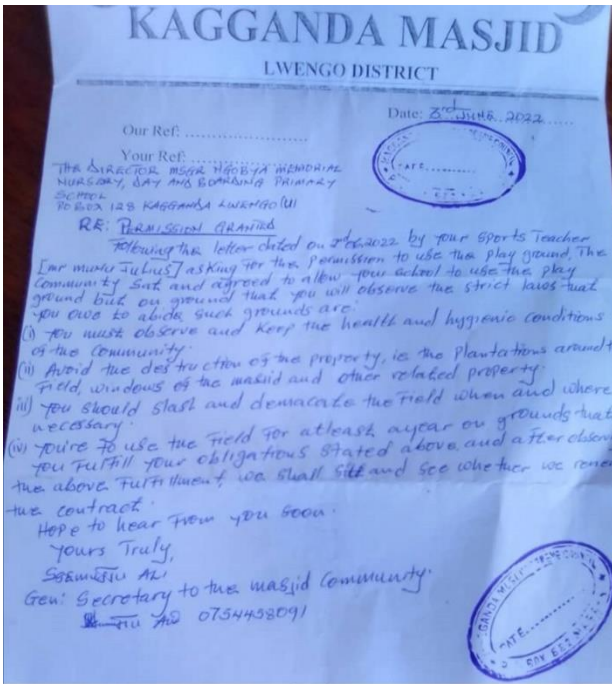 KAGGANDA MASJID
LWENGO DISTRICT
Date: 3rd JUNE 2022
Our Ref: ........................
Your Ref: ........................
THE DIRECTOR MSGR NGOBYA MEMORIAL
NURSERY, DAY AND BOARDING PRIMARY
SCHOOL
PO BOX 128 KAGGANDA LWENGO
RE: PERMISSION GRANTED
Following the letter dated on 2022 by your Sports Teacher
[mr Julius] asking for the Permission to use the play ground, The
Community Sat and agreed to allow your school to use the play
ground but on ground that you will observe the strict laws that
you owe to abide such grounds are:
(i) You must observe and keep the health and hygienic conditions
of the Community.
(ii) Avoid the destruction of the property, ie the Plantations around t
Field, windows of the masjid and other related property.
iii) You should slash and demacate the Field when and where
necessary.
(iv) You're to use the Field for atleast a year on grounds that
you Fulfill your obligations stated above, and after observ
the above Fulfillment, we shall sit and see whether we renew
the contract.
Hope to hear From you soon.
Yours Truly,
Ali
Gen: Secretary to the masjid Community.
0754458091
DATE
DATE